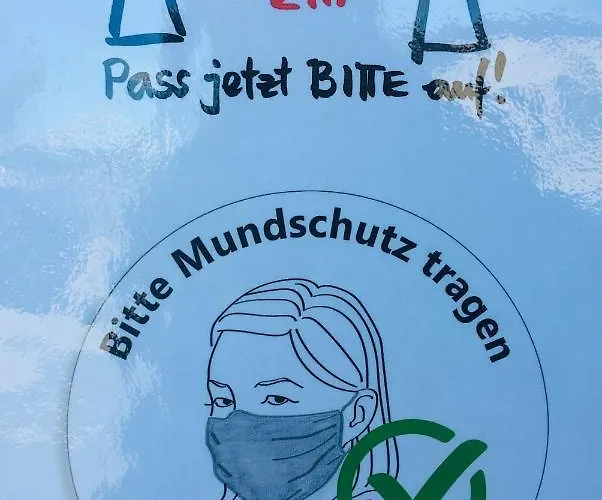 2m
Pass jetzt BITTE auf!
Bitte Mundschutz tragen